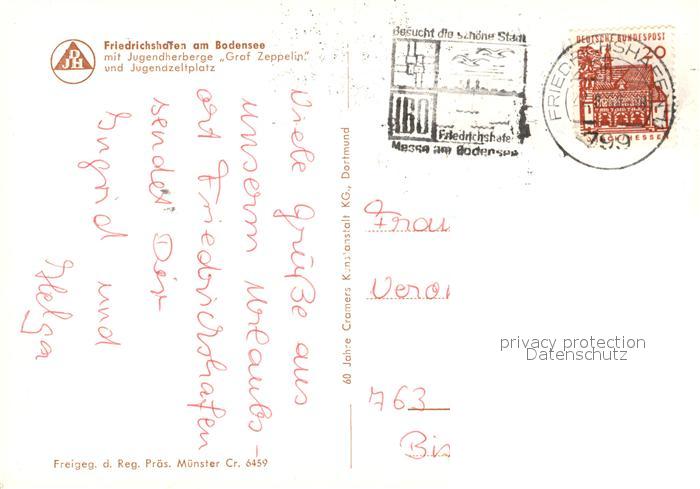 DJH
Friedrichshafen am Bodensee
mit Jugendherberge „Graf Zeppelin"
und Jugendzeltplatz
Viele Grüße aus
unserm Urlaubs-
ort Friedrichshafen
sendet Dir
Ingrid und
Helga
Freigeg. d. Reg. Präs. Münster Cr. 6459
60 Jahre Cramers Kunstanstalt KG., Dortmund
Besucht die schöne Stadt
IBO
Friedrichshafen
Messe am Bodensee
DEUTSCHE BUNDESPOST
20
FRIEDRICHSHAFEN
799
Frau
763
privacy protection
Datenschutz